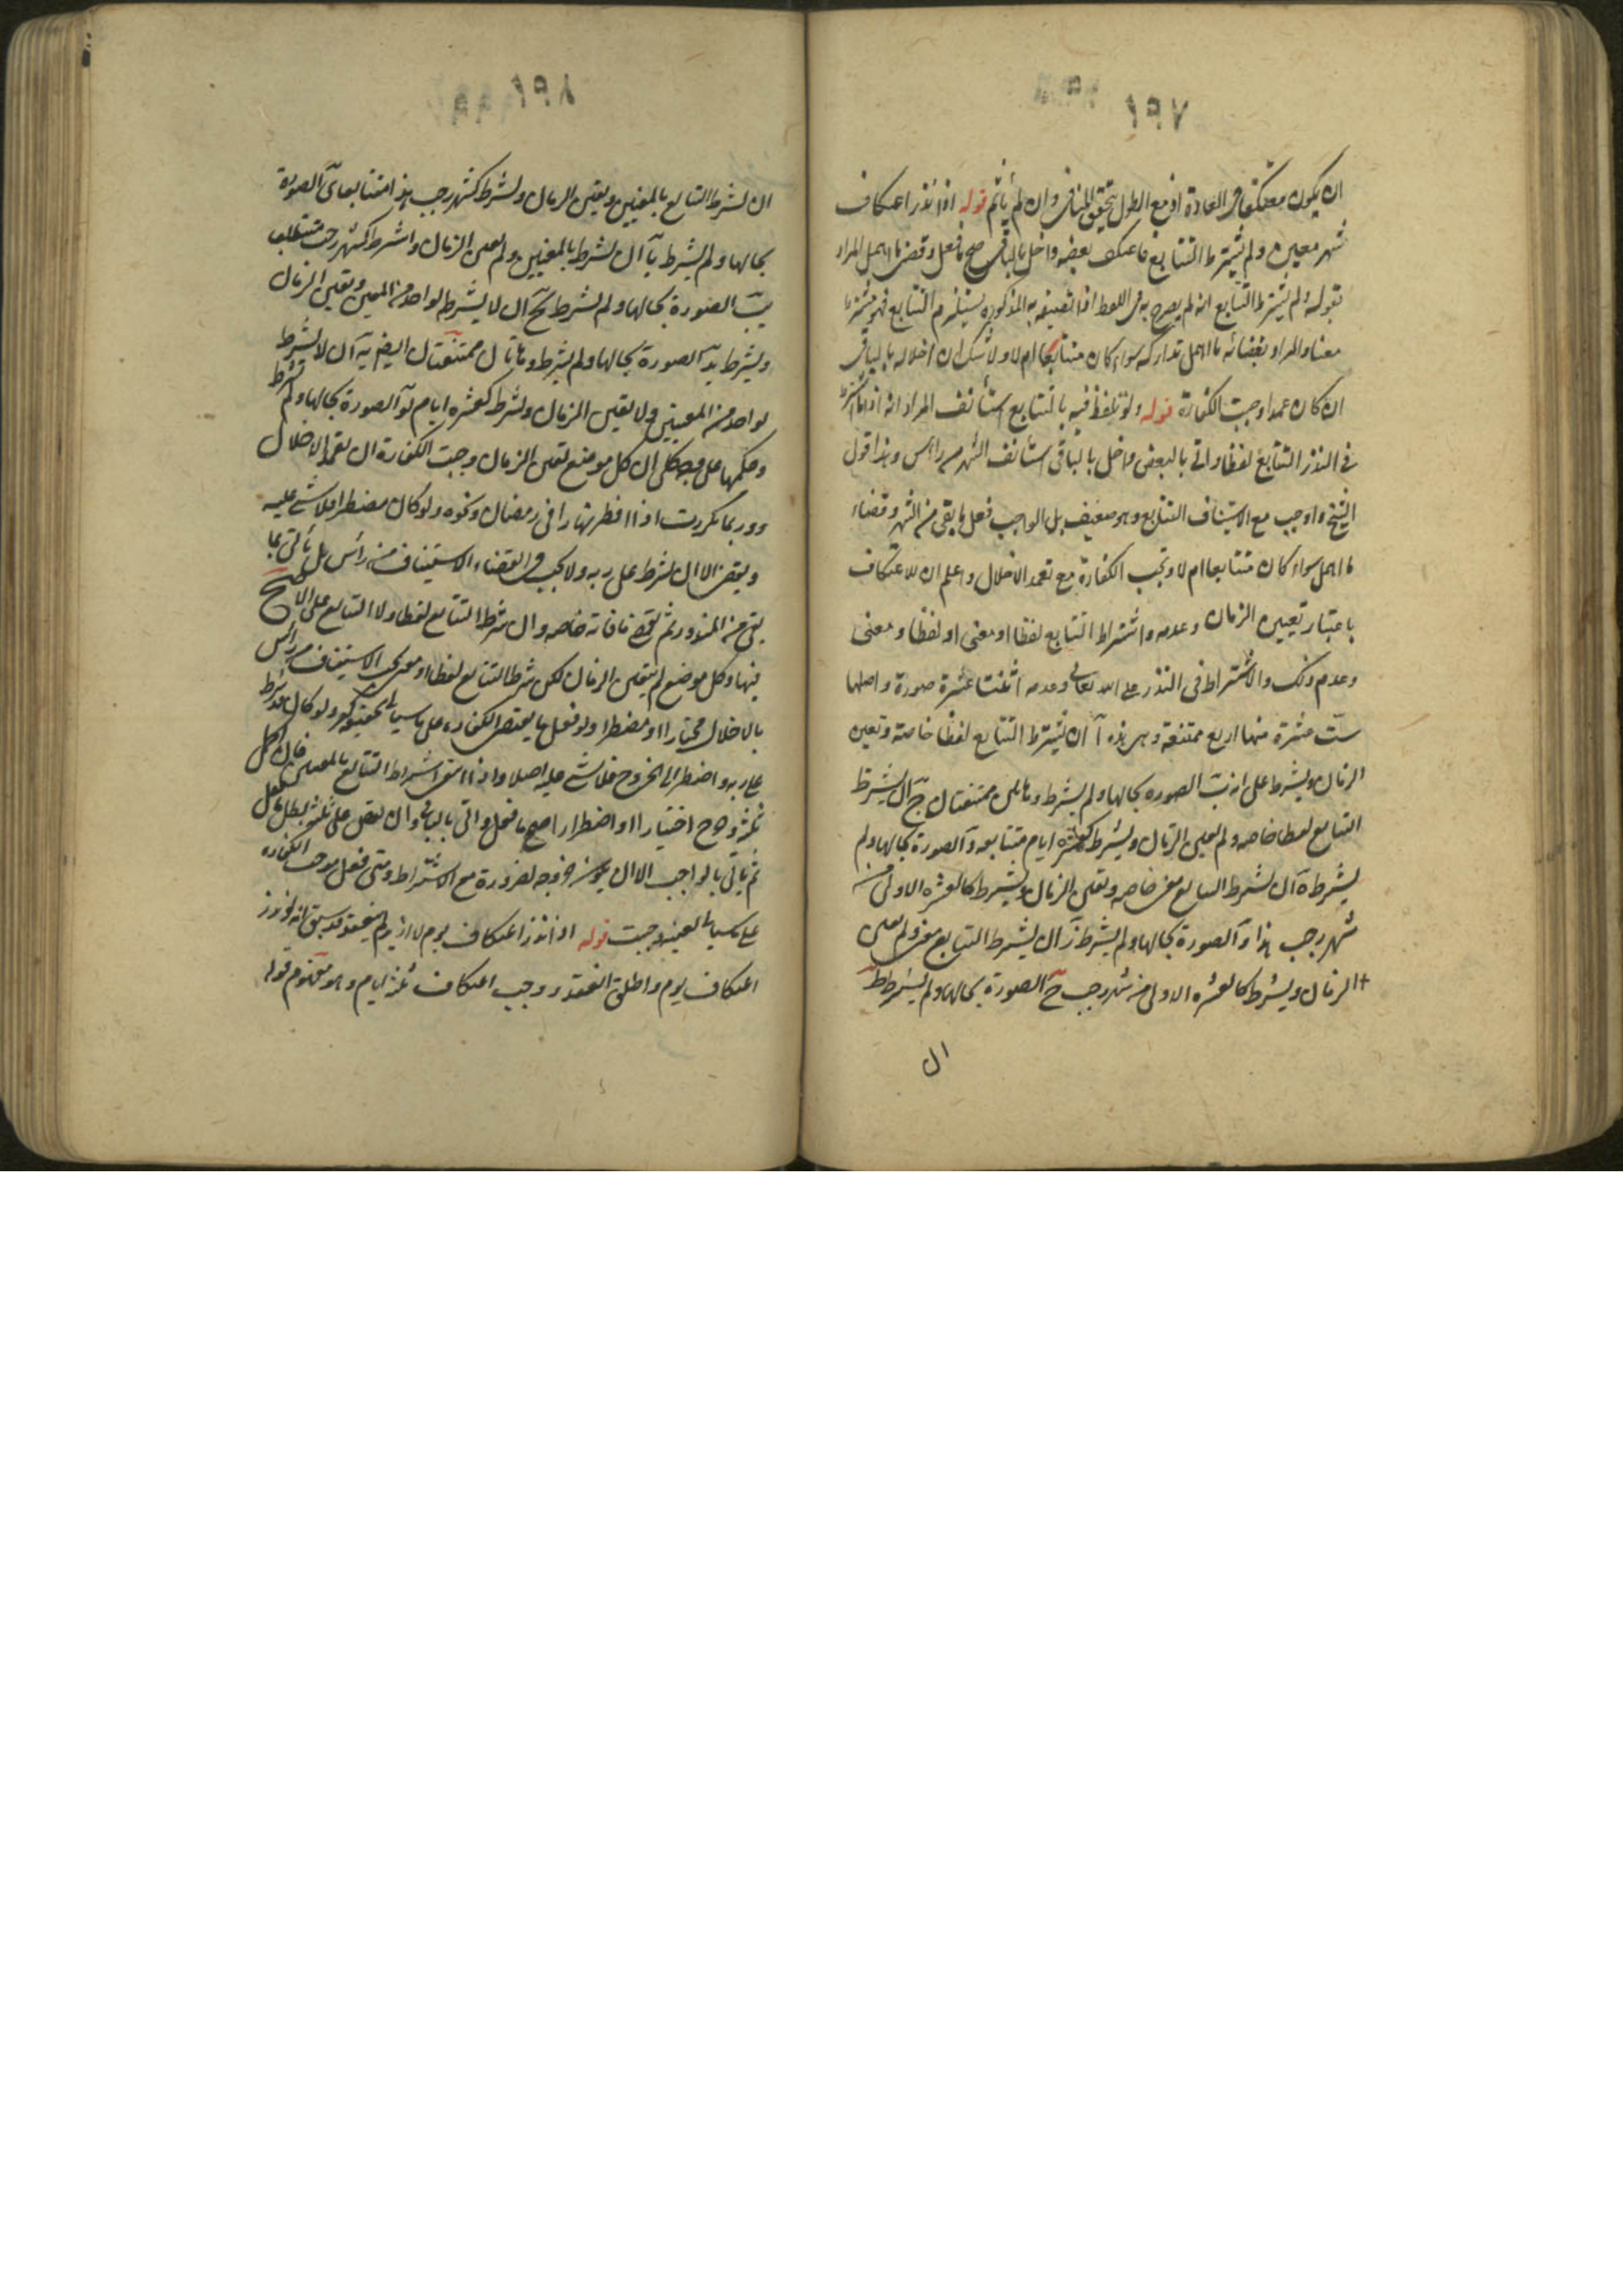 ان يكون معتكفا في العادة او مع الطول تحقق المنافي وان لم يأثم قوله اذا نذر اعتكاف
شهر معين ولم يشترط التتابع فاعتكف بعضه واخل بالباقي صح ما فعل وقضى ما اهمل المراد
بقوله ولم يشترط التتابع انه لم يصرح به في اللفظ يستلزم التتابع فهو مشترط
معنا والمراد بقضائه ما اهمل تداركه سواء كان متتابعا ام لا ولا شك ان اخلاله بالباقي
ان كان عمدا وجبت الكفارة قوله ولو تلفظ فيه بالتتابع استأنف المراد انه اذا شرط
في النذر التتابع لفظا واتى بالبعض واخل بالباقي استأنف الشهر من رأس وهذا قول
الشيخ واوجب مع الاستيناف التتابع وهو ضعيف بل الواجب فعل ما بقي من الشهر وقضاء
ما اهمل سواء كان متتابعا ام لا وتجب الكفارة مع تعمد الاخلال واعلم ان للاعتكاف
باعتبار تعيين الزمان وعدمه واشتراط التتابع لفظا او معنى او لفظا ومعنى
وعدم ذلك والاشتراط في النذر على الله تعالى وعدمه اثنتا عشرة صورة واصلها
ست عشرة منها اربع ممتنعة وهي هذه آ ان يشترط التتابع لفظا خاصة وتعين
الزمان ويشترط على ربه ب الصورة بحالها ولم يشترط وهاتان ممتنعتان ج ان يشترط
التتابع لفظا خاصه ولم يعين الزمان ويشترط كعشرة ايام متتابعه د الصورة بحالها ولم
يشترط ه ان يشترط التتابع معنى خاصه وتعين الزمان ويشترط كالعشرة الاولى من
شهر رجب هذا و الصورة بحالها ولم يشترط ز ان يشترط التتابع معنى ولم يعين
الزمان ويشترط كالعشره الاولى من شهر رجب ح الصورة بحالها ولم يشترط ط
ان
ان يشرط التتابع بالمعنيين ويعين الزمان ويشرط كشهر رجب هذا متتابعا ى الصورة
بحالها ولم يشترط يا ان يشرط بالمعنيين ولم يعين الزمان واشترط كشهر رجب متتابعا
يب الصورة بحالها ولم يشرط يج ان لا يشرط لواحد من المعنيين وتعين الزمان
ويشرط يد الصورة بحالها ولم يشرط وهاتان ممتنعتان ايضا يه ان لا يشرط
لواحد من المعنيين ولا يعين الزمان ويشرط كعشرة ايام يو الصورة بحالها ولم يشرط
وحكمها على وجه كلي ان كل موضع تعين الزمان وجبت الكفارة ان تعمد الاخلال
وربما تكررت اذا افطر نهارا في رمضان ونحوه ولو كان مضطرا فلا شيء عليه
ويقضى الا ان يشرط على ربه ولا يجب في القضاء الاستيناف من رأس بل يأتي بما
بقي من المنذور ثم يقضي ما فاته خاصه وان شرط التتابع لفظا ولا التتابع على الاصح
فيها وكل موضع لم يتعين الزمان لكن شرط التتابع لفظا او معنى يجب الاستيناف من رأس
بالاخلال مختارا او مضطرا ولو فعل ما يقتضي الكفارة على ما سيأتي ولو كان قد شرط
على ربه واضطر الى الخروج فلا شيء عليه اصلا واذا انتفى اشتراط التتابع بالمعنيين فان اكمل
ثلثه وخرج اختيارا او اضطرارا صح ما فعل واتى بالباقي وان نقص على ثلثه بطل ما فعل
ثم يأتي بالواجب الا ان يكون خروجه لضرورة مع الاشتراط ومتى فعل موجب الكفاره
على ما سيأتي وجبت قوله اذا نذر اعتكاف يوم لا ازيد لم ينعقد قد سبق انه لو نذر
اعتكاف يوم واطلق انعقد ووجب اعتكاف ثلثة ايام وهو مفهوم قوله